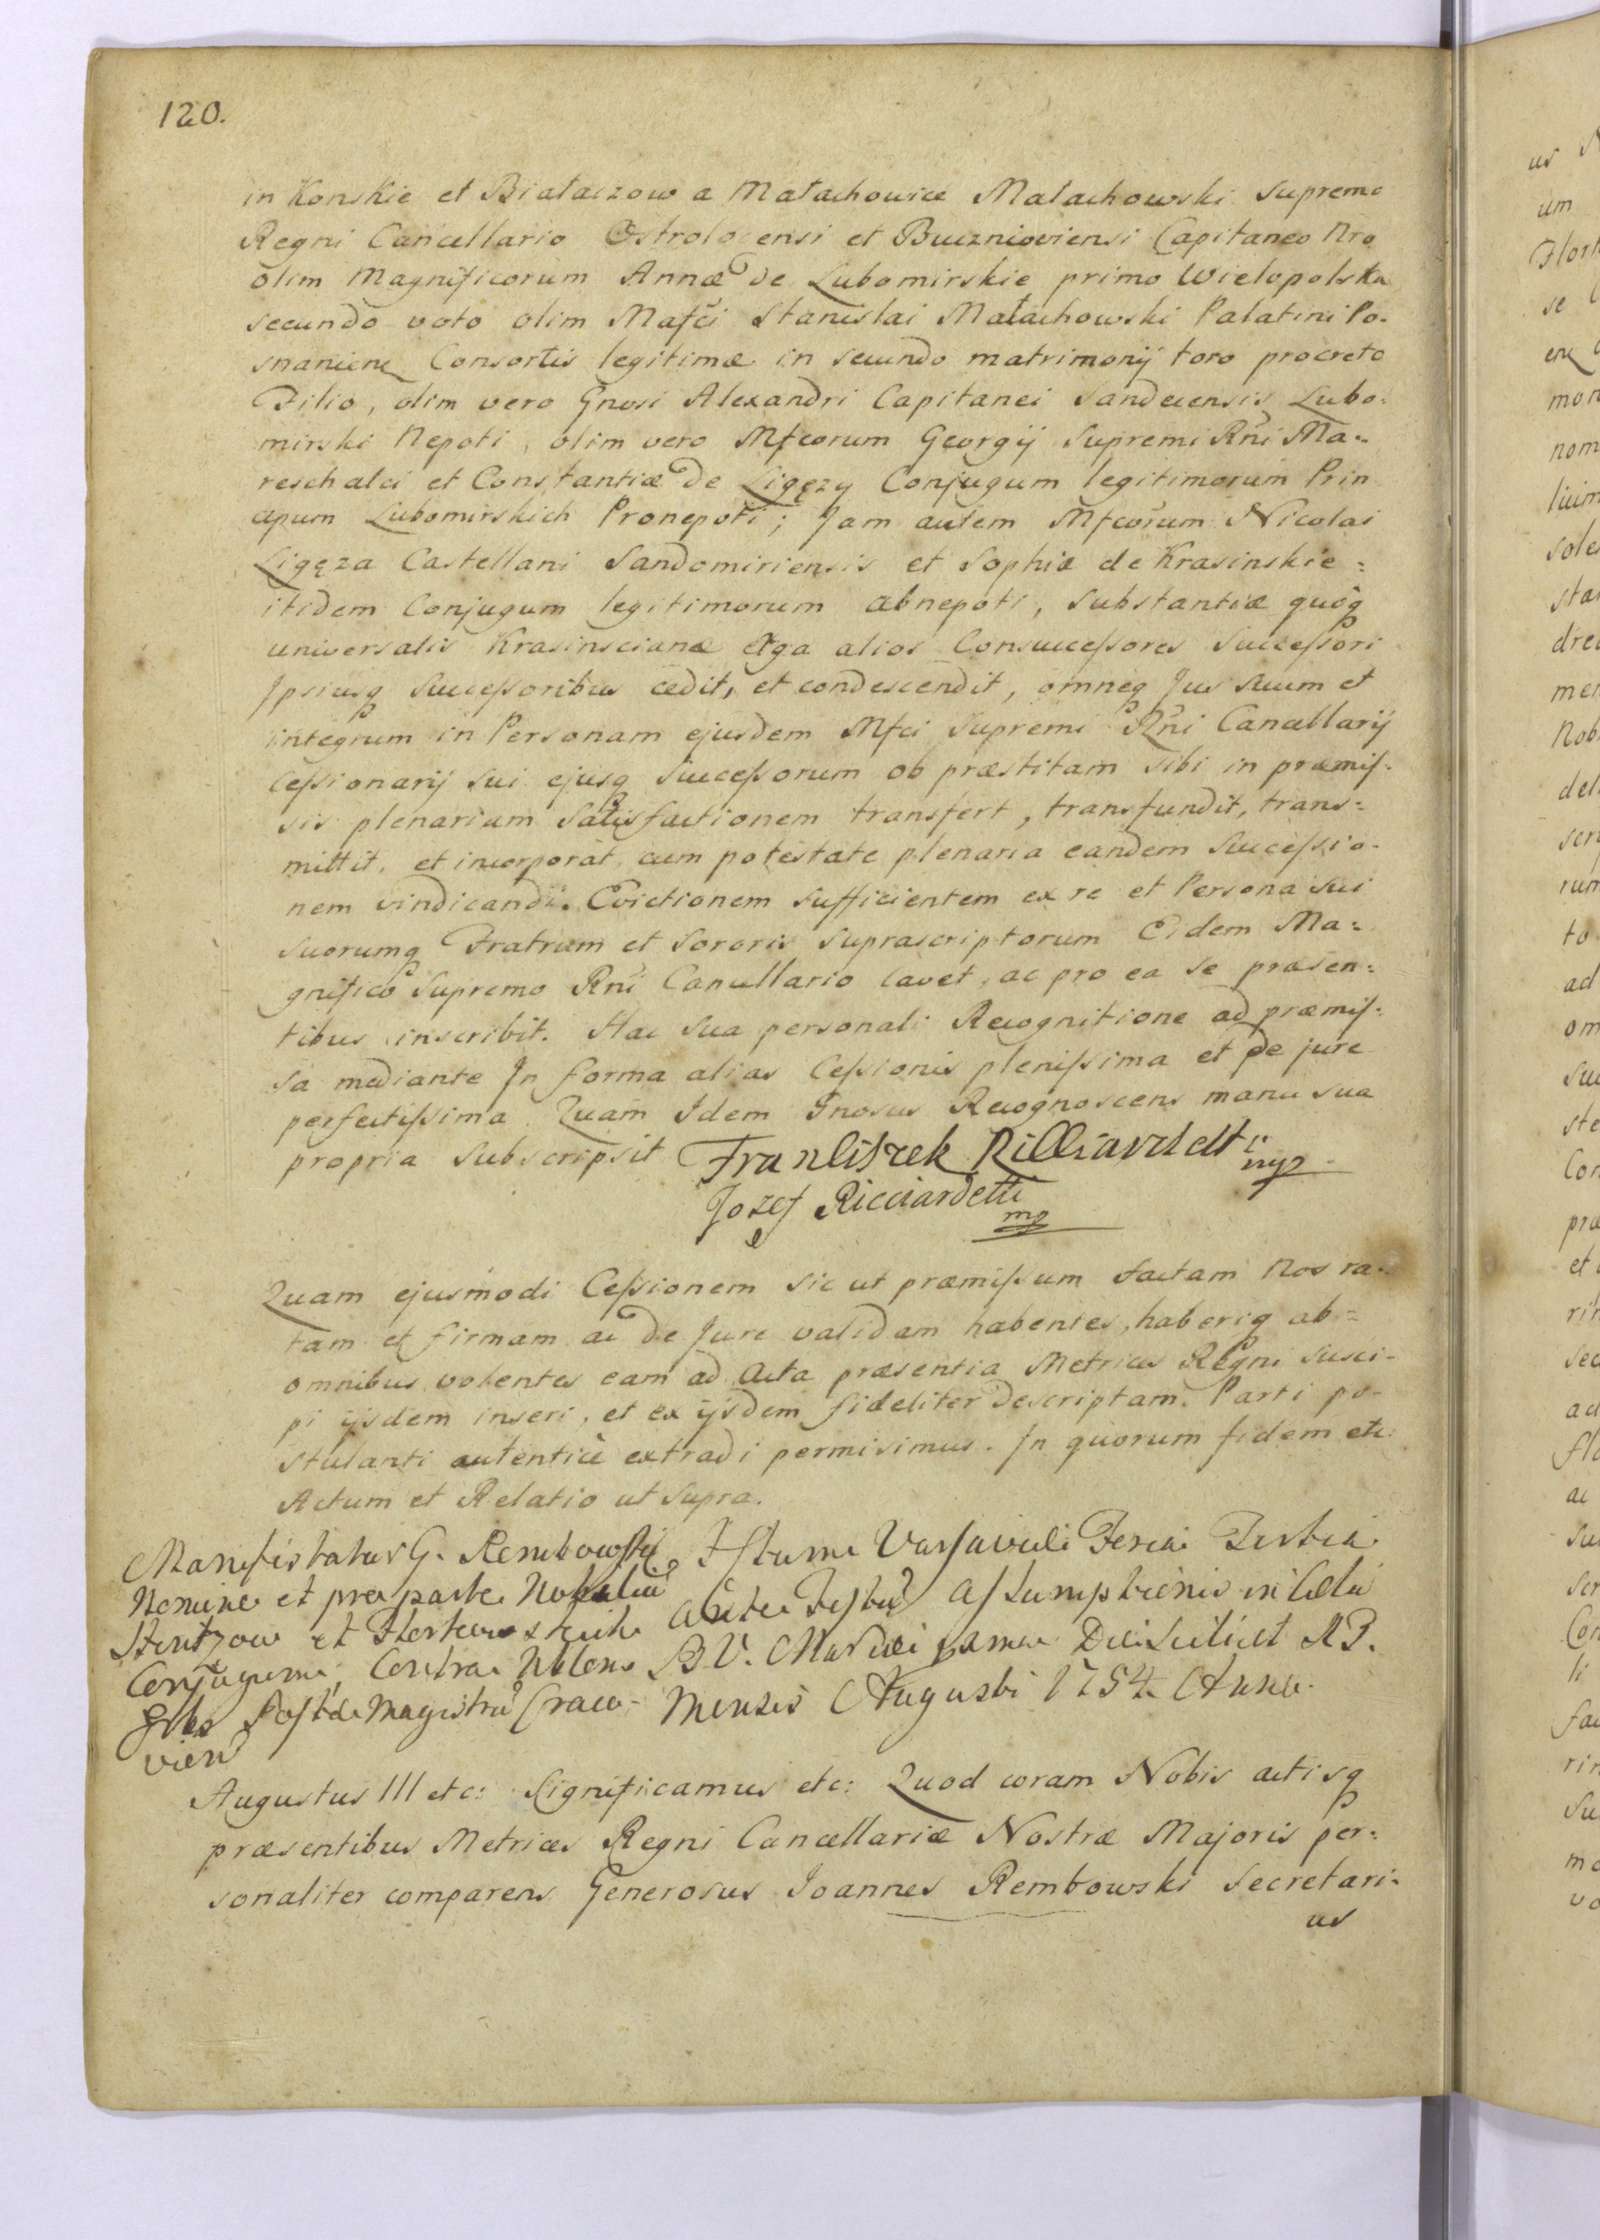 120.
in Konskie et Białaczow a Małachowice Małachowski Supremo
Regni Cancellario Ostrolocensi et Bucznioviensi Capitaneo Nro
olim Magnificorum Annæ de Lubomirskie primo Wielopolska
secundo voto olim Mafci Stanislai Małachowski Palatini Po-
snaniens Consortis legitimæ in secundo matrimonij toro procreto
Filio, olim vero Gnosi Alexandri Capitanei Sandecensis Lubo:
mirski Nepoti, olim vero Mfcorum Georgij Supremi Rni Ma-
reschalci et Constantiæ de Ligęzy Conjugum legitimorum Prin
cipum Lubomirskich Pronepoti; Jam autem Mfcorum Nicolai
Ligęza Castellani Sandomiriensis et Sophiæ de Krasinskie =
itidem Conjugum legitimorum abnepoti, Substantiæ quoq
universalis Krasinscianæ erga alios Consuccessores Successori
Ipsiusq Successoribus cedit, et condescendit, omneq Jus suum et
integrum in Personam ejusdem Mfci Supremi Rni Cancellarij
Cessionarij sui ejusq Successorum ob præstitam sibi in præmis-
sis plenariam Satisfactionem transfert, transfundit, trans=
mittit, et incorporat cum potestate plenaria eandem Successio-
nem vindicandi. Evictionem sufficientem ex re et Persona sui
suorumq Fratrum et Sororis suprascriptorum Eidem Ma=
gnifico Supremo Rni Cancellario cavet, ac pro ea se præsen=
tibus inscribit. Hac sua personali Recognitione ad præmis-
sa mediante In forma alias Cessionis plenissima et de jure
perfectissima Quam Idem Gnosus Recognoscens manu sua
propria Subscripsit Franciszek Ricciardetti mp
Jozef Ricciardetti
mp
Quam ejusmodi Cessionem sic ut præmissum factam Nos ra-
tam et firmam ac de Jure validam habentes, haberiq ab=
omnibus volentes eam ad Acta præsentia Metrices Regni susci-
pi ijsdem inseri, et ex ijsdem fideliter descriptam Parti po-
stulanti autentice extradi permisimus. In quorum fidem etc:
Actum et Relatio ut supra.
Manifestatur G. Rembowski
Nomine et pro parte Nobilium
et
Conjugum, Contra Nobilem
Magistrum Craco-
vien
Actum Varsaviæ Feria Tertia
ante Festum Assumptionis in Cælu
B.V. Mariæ Die Scilicet 13.
Mensis Augusti 1754 Anno.
Augustus III etc: Significamus etc: Quod coram Nobis actisq
præsentibus Metrices Regni Cancellariæ Nostræ Majoris per=
sonaliter comparens Generosus Joannes Rembowski Secretari-
us